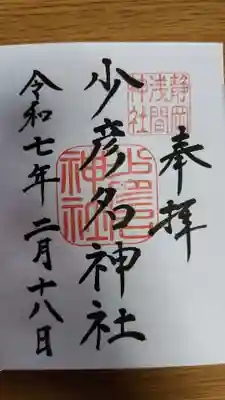 奉拝
静岡
浅間
神社
少彦名神社
少彦名
神社
令和七年 二月十八日